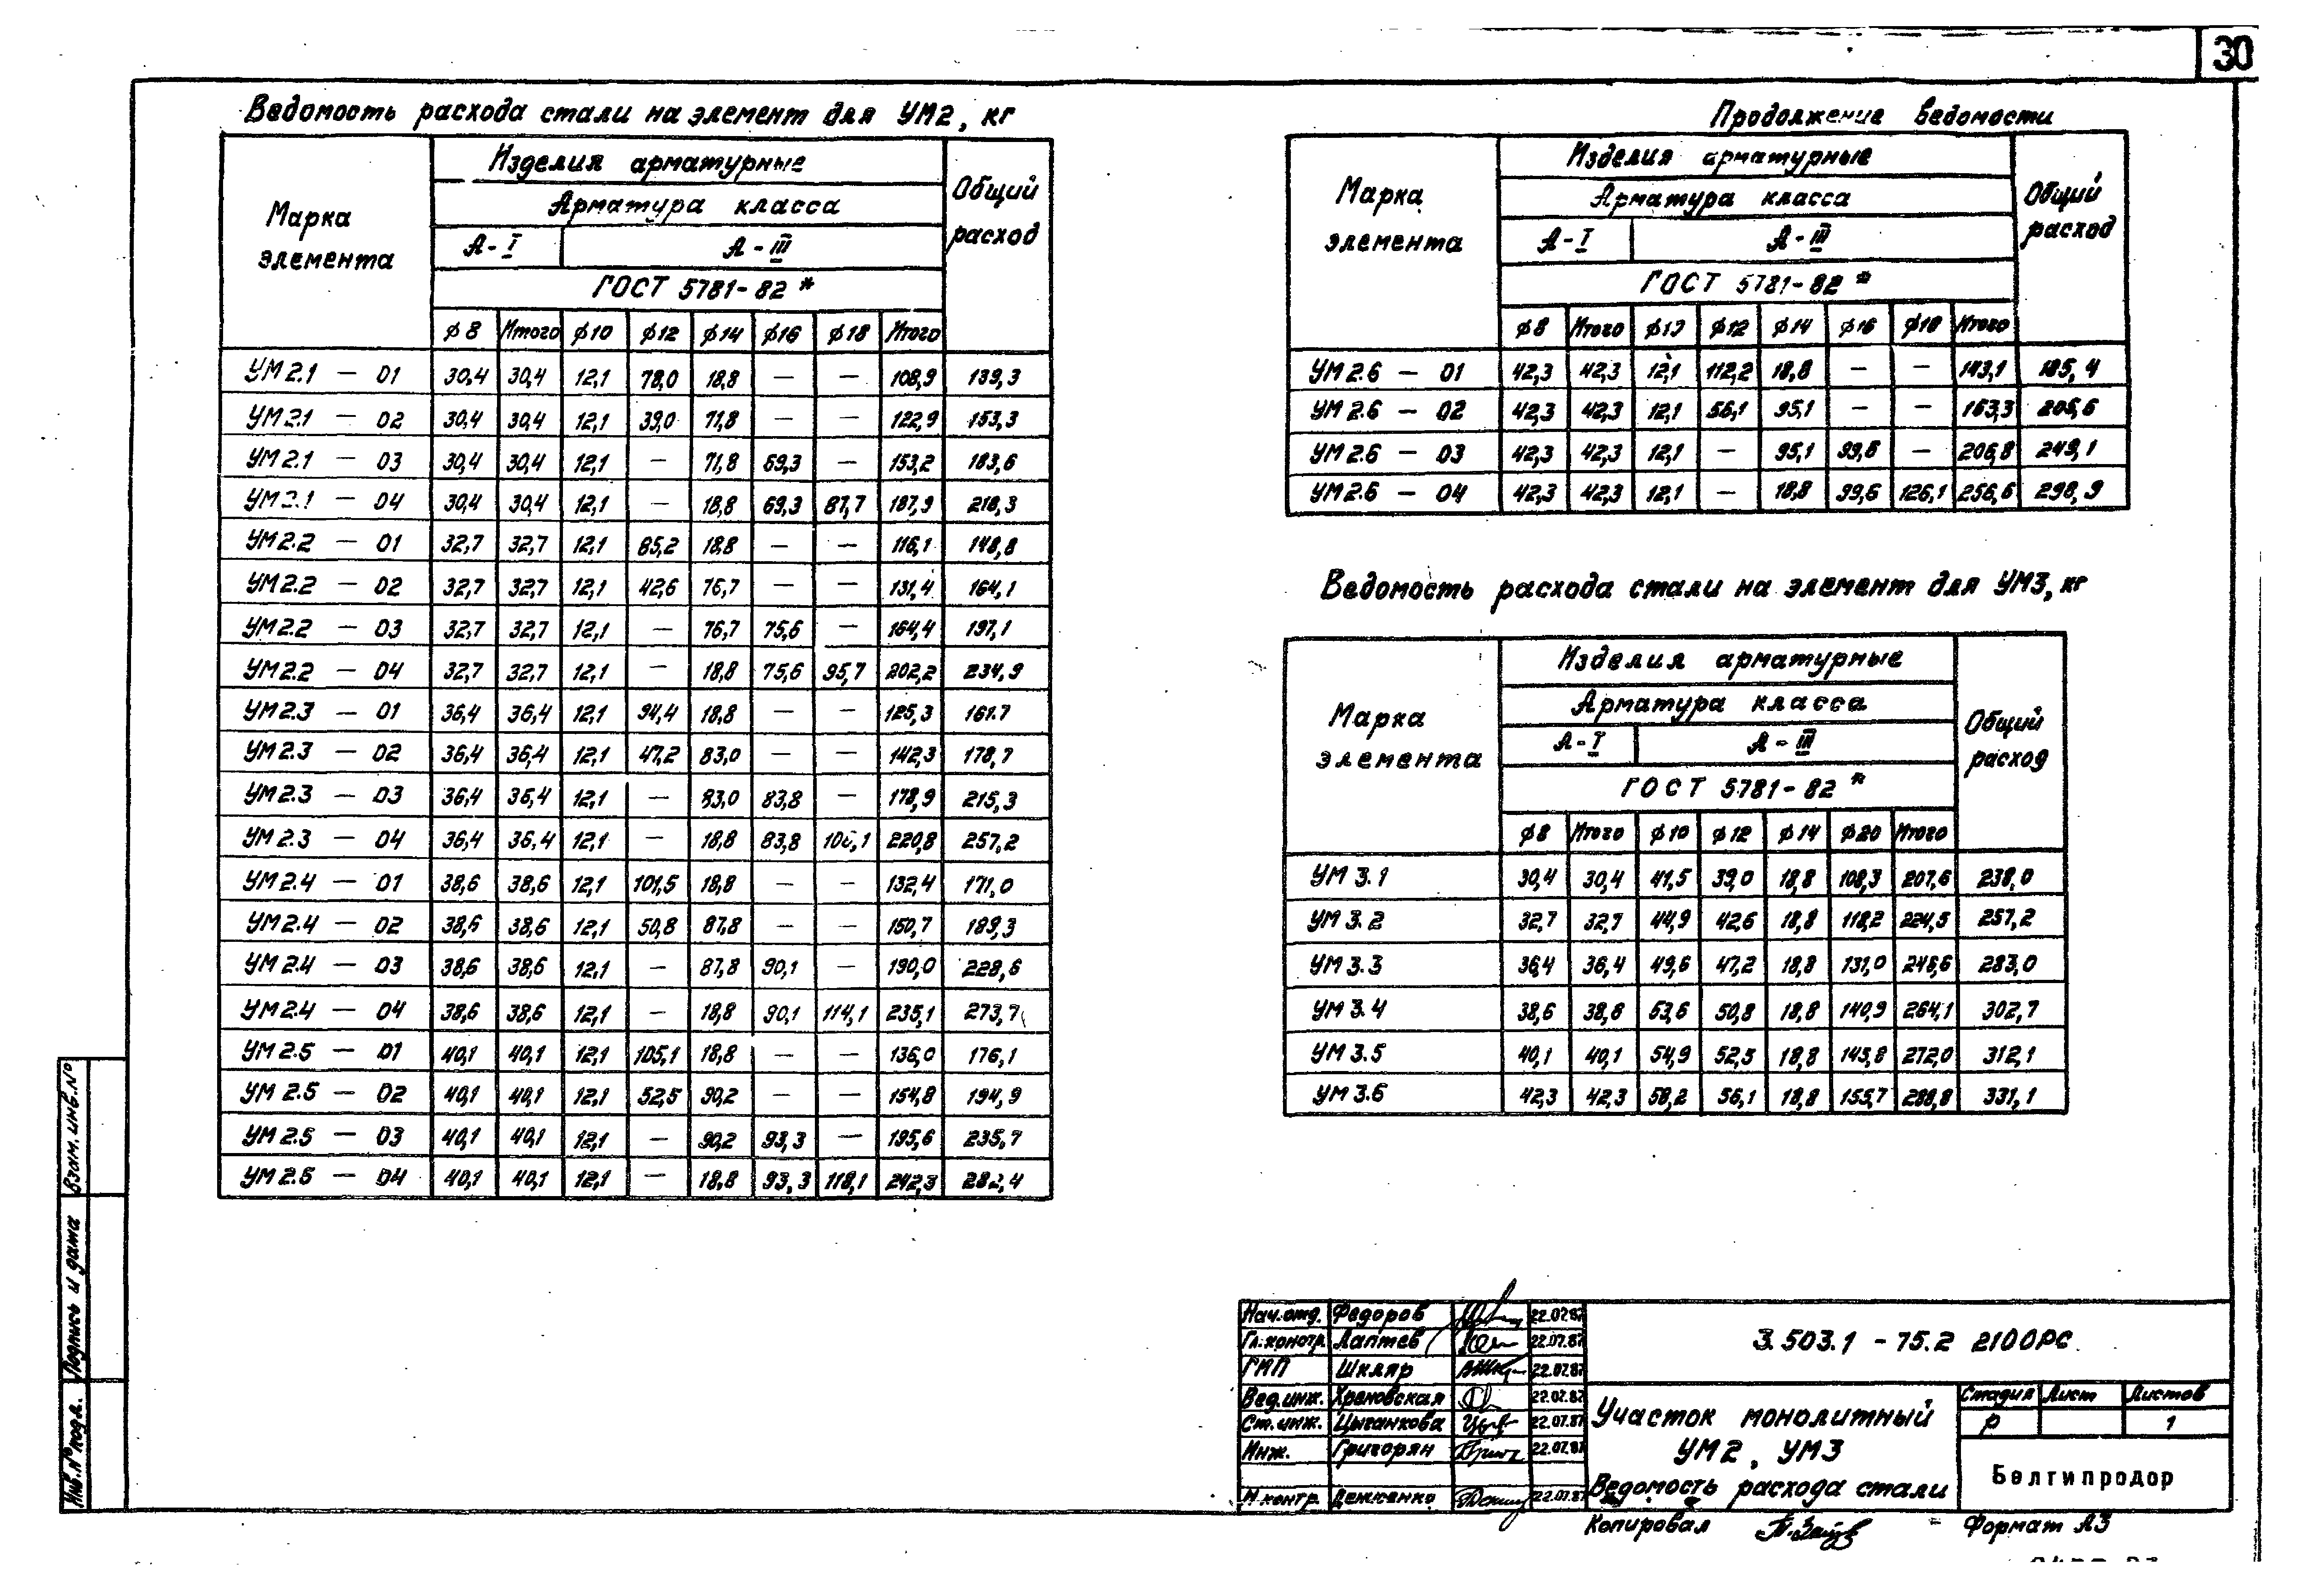 30
Ведомость расхода стали на элемент для УМ2, кг
Марка элемента
Изделия арматурные
Общий расход
Арматура класса
А-I А-III
ГОСТ 5781-82*
ф8 Итого ф10 ф12 ф14 ф16 ф18 Итого
УМ2.1 — 01 30,4 30,4 12,1 78,0 18,8 — — 108,9 139,3
УМ2.1 — 02 30,4 30,4 12,1 39,0 71,8 — — 122,9 153,3
УМ2.1 — 03 30,4 30,4 12,1 — 71,8 69,3 — 153,2 183,6
УМ2.1 — 04 30,4 30,4 12,1 — 18,8 69,3 87,7 187,9 218,3
УМ2.2 — 01 32,7 32,7 12,1 85,2 18,8 — — 116,1 148,8
УМ2.2 — 02 32,7 32,7 12,1 42,6 76,7 — — 131,4 164,1
УМ2.2 — 03 32,7 32,7 12,1 — 76,7 75,6 — 164,4 197,1
УМ2.2 — 04 32,7 32,7 12,1 — 18,8 75,6 95,7 202,2 234,9
УМ2.3 — 01 36,4 36,4 12,1 94,4 18,8 — — 125,3 161.7
УМ2.3 — 02 36,4 36,4 12,1 47,2 83,0 — — 142,3 178,7
УМ2.3 — 03 36,4 36,4 12,1 — 83,0 83,8 — 178,9 215,3
УМ2.3 — 04 36,4 36,4 12,1 — 18,8 83,8 106,1 220,8 257,2
УМ2.4 — 01 38,6 38,6 12,1 101,5 18,8 — — 132,4 171,0
УМ2.4 — 02 38,6 38,6 12,1 50,8 87,8 — — 150,7 189,3
УМ2.4 — 03 38,6 38,6 12,1 — 87,8 90,1 — 190,0 228,6
УМ2.4 — 04 38,6 38,6 12,1 — 18,8 90,1 114,1 235,1 273,7
УМ2.5 — 01 40,1 40,1 12,1 105,1 18,8 — — 136,0 176,1
УМ2.5 — 02 40,1 40,1 12,1 52,5 90,2 — — 154,8 194,9
УМ2.5 — 03 40,1 40,1 12,1 — 90,2 93,3 — 195,6 235,7
УМ2.5 — 04 40,1 40,1 12,1 — 18,8 93,3 118,1 242,3 282,4
Продолжение ведомости
Марка элемента
Изделия арматурные
Общий расход
Арматура класса
А-I А-III
ГОСТ 5781-82*
ф8 Итого ф10 ф12 ф14 ф16 ф18 Итого
УМ2.6 — 01 42,3 42,3 12,1 112,2 18,8 — — 143,1 185,4
УМ2.6 — 02 42,3 42,3 12,1 56,1 95,1 — — 163,3 205,6
УМ2.6 — 03 42,3 42,3 12,1 — 95,1 99,6 — 206,8 249,1
УМ2.6 — 04 42,3 42,3 12,1 — 18,8 99,6 126,1 256,6 298,9
Ведомость расхода стали на элемент для УМ3, кг
Марка элемента
Изделия арматурные
Общий расход
Арматура класса
А-I А-III
ГОСТ 5781-82*
ф8 Итого ф10 ф12 ф14 ф20 Итого
УМ3.1 30,4 30,4 41,5 39,0 18,8 108,3 207,6 238,0
УМ3.2 32,7 32,7 44,9 42,6 18,8 118,2 224,5 257,2
УМ3.3 36,4 36,4 49,6 47,2 18,8 131,0 246,6 283,0
УМ3.4 38,6 38,6 53,6 50,8 18,8 140,9 264,1 302,7
УМ3.5 40,1 40,1 54,9 52,5 18,8 145,8 272,0 312,1
УМ3.6 42,3 42,3 58,2 56,1 18,8 155,7 288,8 331,1
Взам. инв. №
Подпись и дата
Инв. № подл.
Нач. отд. Федоров 22.07.87
Гл. констр. Лаптев 22.07.87
ГИП Шкляр 22.07.87
Вед. инж. Хреновская 22.07.87
Ст. инж. Цыганкова 22.07.87
Инж. Григорян 22.07.87
Н.контр. 22.07.87
3.503.1-75.2 2100РС
Участок монолитный
УМ2, УМ3
Ведомость расхода стали
Стадия Лист Листов
Р 1
Белгипродор
Копировал
Формат А3